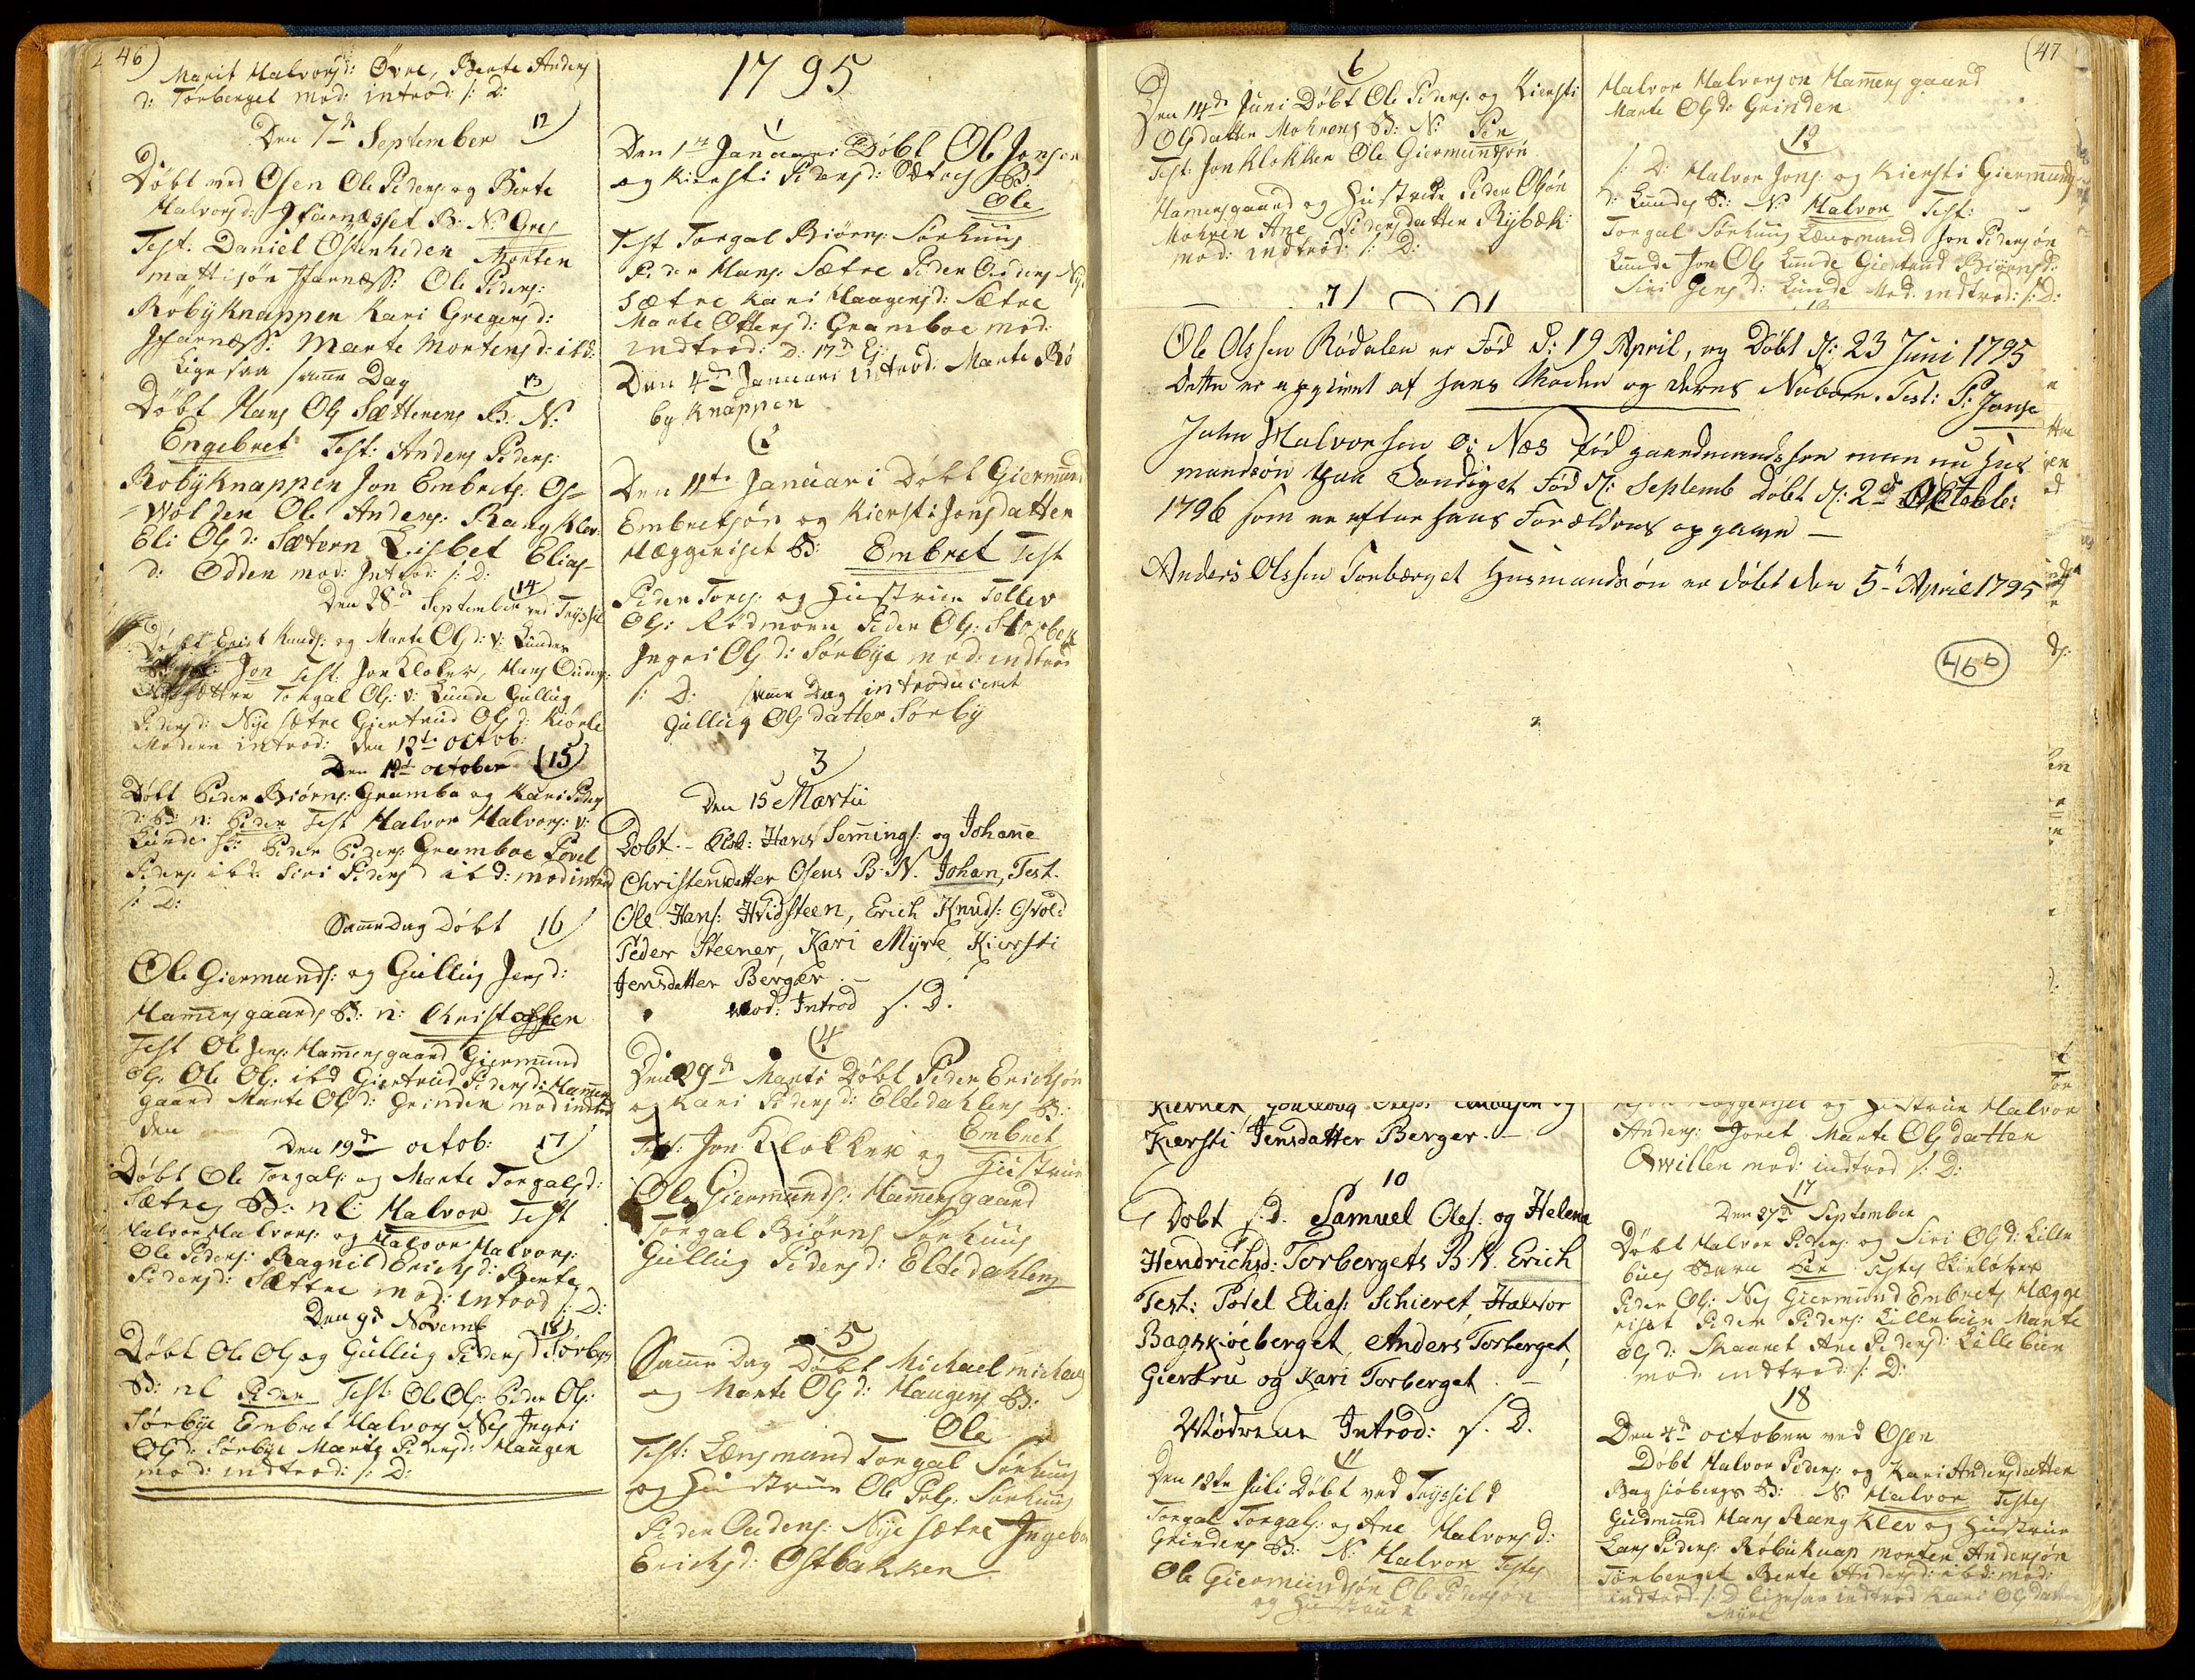 46)
Marit Halvorsd: Øvre, Berte Anders
d: Torberget mod: introd: s: D:
Den 7de September 12)
Døbt ved Osen Ole Peders: og Birte
Halvorsd:
Test: Daniel Østenheden Morten
mattisøn Ole Peders:
Røbyknappen Kari Gregersd:
Marte Mortensd: ibd:
Lige saa samme Dag
13)
Døbt Hans Ols: Sætterens B: N:
Engebret Test: Anders Peders:
Røbyknappen Jon Embrets:
Ole Anders: Rangklev:
Eli Olsd: Sætern Lisbet Elias-
d: Odden mod: Introd: s: D:
14)
Den 28de September ved Tryssil
Døbt Erich Knuds: og Marte Olsd: v: Lunden
Jon Test: Jon Kloker, Hans
Torgal Ols: v: Lunde Gullug
Pedersd: Nysætre Giertrud Olsd:
Moderen introd: den 12te octob:
Den 12te october (15)
Døbt Peder Biørns: Gramboe og Kari Peders
d: B: n: Peder Test Halvor Halvors: v:
Lunde Peder Peders: Gramboe Povel
Peders: ibd: Siri Pedersd ibd: mod introd
s: D:
Samme Dag Døbt 16)
Ole Giermunds: og Gullug Jensd:
Hammersgaards B: n: Christoffer
Test Ole Jens: Hammersgaard Giermund
Ols: Ole Ols: ibd Giertrud Pedersd: Hammers
gaard Marte Olsd: Grinden mod introd
den
Den 19de octob: 17)
Døbt Ole Torgals: og Marte Torgalsd:
Sætres B: nl: Halvor Test
Halvor Halvors: og Halvor Halvors:
Ole Peders: Ragnild Ericksd: Berte
Pedersd: Sættre mod: introd s: D:
Den 9de Novemb 18)
Døbt Ole Ols og Gullug Pedersd Sørbys
B: nl Peder Test: Ole Ols: Peder Ols:
Sørbye Embret Halvors Nes Ingri
Olsd: Sørbye Marte Pedersd: Haugen
mod: indtrod: s: D:
1795
1
Den 1te Januari Døbt Ole Jonsøn
og Kiersti Pedersd: Sætres B:
Ole
Test Torgal Biørns: Sørhuus
Peder Hans: Sætre Peder Nye
sætre Kari Haagensd: Sætre
Marte Ottersd: Gramboe mod:
indtrod: D: 17de Ej:
Den 4de Januari introd: Marte Rø
byknappen
(2
Den 11te Januari Døbt Giermund
Embretsøn og Kiersti Jonsdatter
Hæggeriset B: Embret Test
Peder Tores: og Hustrue Tollev
Ols: Rødmoen Peder Ols:
Ingri Olsd: Sørbye mod: indtrod
s: D: samme Dag introduceret
Gullug Olsdatter Sørby
3
Den 15 Martii
Døbt - Hans Semmings: og Johanne
Christensdatter Osens B. N. Johan, Test.
Ole Hans: Hvidsteen, Erich Knuds:
Peder Steener, Kari Myre, Kiersti
Jensdatter Berger
mod: Introd s. D.
(4
Den 29de Marti Døbt Peder Ericksøn
og Kari Pedersd: Eltedahlens B:
Embret
Test: Jon Klokker og Hustrue
Ole Giermunds: Hammersgaard
Torgal Biørns Sørhuus
Gullug Pedersd: Eltedahlens
5
Samme Dag Døbt Michael michels
og Marte Olsd: Haugens B:
Ole
Test: Lensmand Torgal Sørhuus
og Hustrue Ole Pols: Sørhuus
Peder Nye sætre Ingebor
Ericksd: Østbakken
6
Den 14de Juni Døbt Ole Peders: og Kiersti
Olsdatter Mohrens B: N: Per
Test: Jon Klokker Ole Giermundsøn
Hamersgaard og Hustrue Peder Olsøn
Mohren Ane Pedersdatter Rybæk:
mod: indtrod: s: D:
7)
Ole Olssen Rødalen er Fød d: 19 April, og Døbt d: 23 Juni 1795
Dette er opgivet af hans Moder og deres Naboer. Test: P: Jonse
John Halvorsen Næs Fød gaardmandssøn men nu Hus
mandsøn Sandiget Fød d: Septemb Døbt d: 2de Octobr:
1796 som er efter hans Forældres opgave —
Anders Olssen Torberget Husmandsøn er døbt den 5te April 1795
46b
Kiersti Jensdatter Berger. —
10
Døbt s. d. Samuel Oles: og Helena
Hendrichsd: Torbergets B. N. Erich
Test: Povel Elias: Schieret, Halvor
Bagskioeberget, Anders Torberget,
Giertru og Kari Torberget. —
Mødrene Introd: s. D.
11
Den 12te Juli Døbt ved Tryssild
Torgal Torgals: og Ane Halvorsd:
Grindens B: N: Halvor Testes
Ole Giermundsøn Ole Pedersøn
og Hustrue
(47
Halvor Halvorson Hammersgaard
Marte Olsd: Grinden
12
s: D: Halvor Jons: og Kiersti Giermunds
d: Lundes B: N: Halvor Test:
Torgal Sørhuus Lænsmand Jon Pedersøn
Lunde Jon Ols Lunde Giertrud Biørnsd:
Siri Jensd: Lunde Mod: indtrod: s: D:
og Hustrue Halvor
Anders: Joret Marte Olsdatter
Qwillen mod: indtrod s: D:
17
Den 27de September
Døbt Halvor Peders: og Siri Olsd: Lille
bues Barn Per Testes
Peder Ols: Nes Giermund Embrets Hægge
riset Peder Peders: Lillebuen Marte
Olsd: Skaaret Ane Pedersd: Lillebuen
mod: indtrod: s: D:
18
Den 4de october ved Osen
Døbt Halvor Peders: og Kari Andersdatter
Bagsiøbergs B: N: Halvor Testes
Gudmund Hans Rangklev og Hustrue
Lars Peders: Røbuknap morten Andersøn
Torberget Berte Andersd: ibd: mod:
indtrod s: D: ligesaa indtrod Kari Olsdatter
Myre